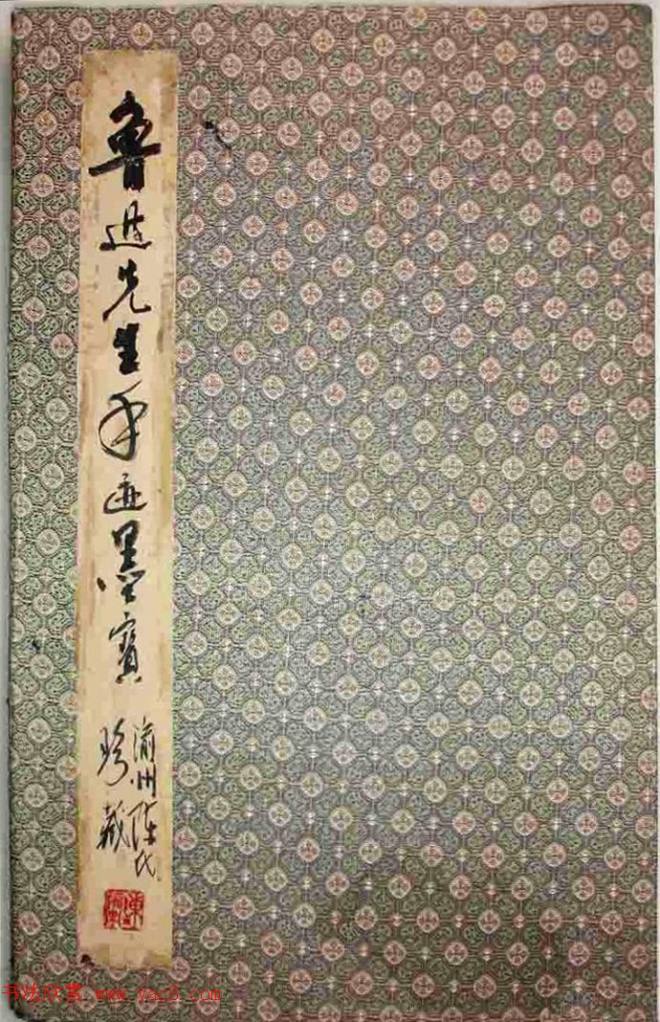 鲁迅先生手迹墨宝
渝州陈氏
珍藏
书法欣赏 www.yac8.com